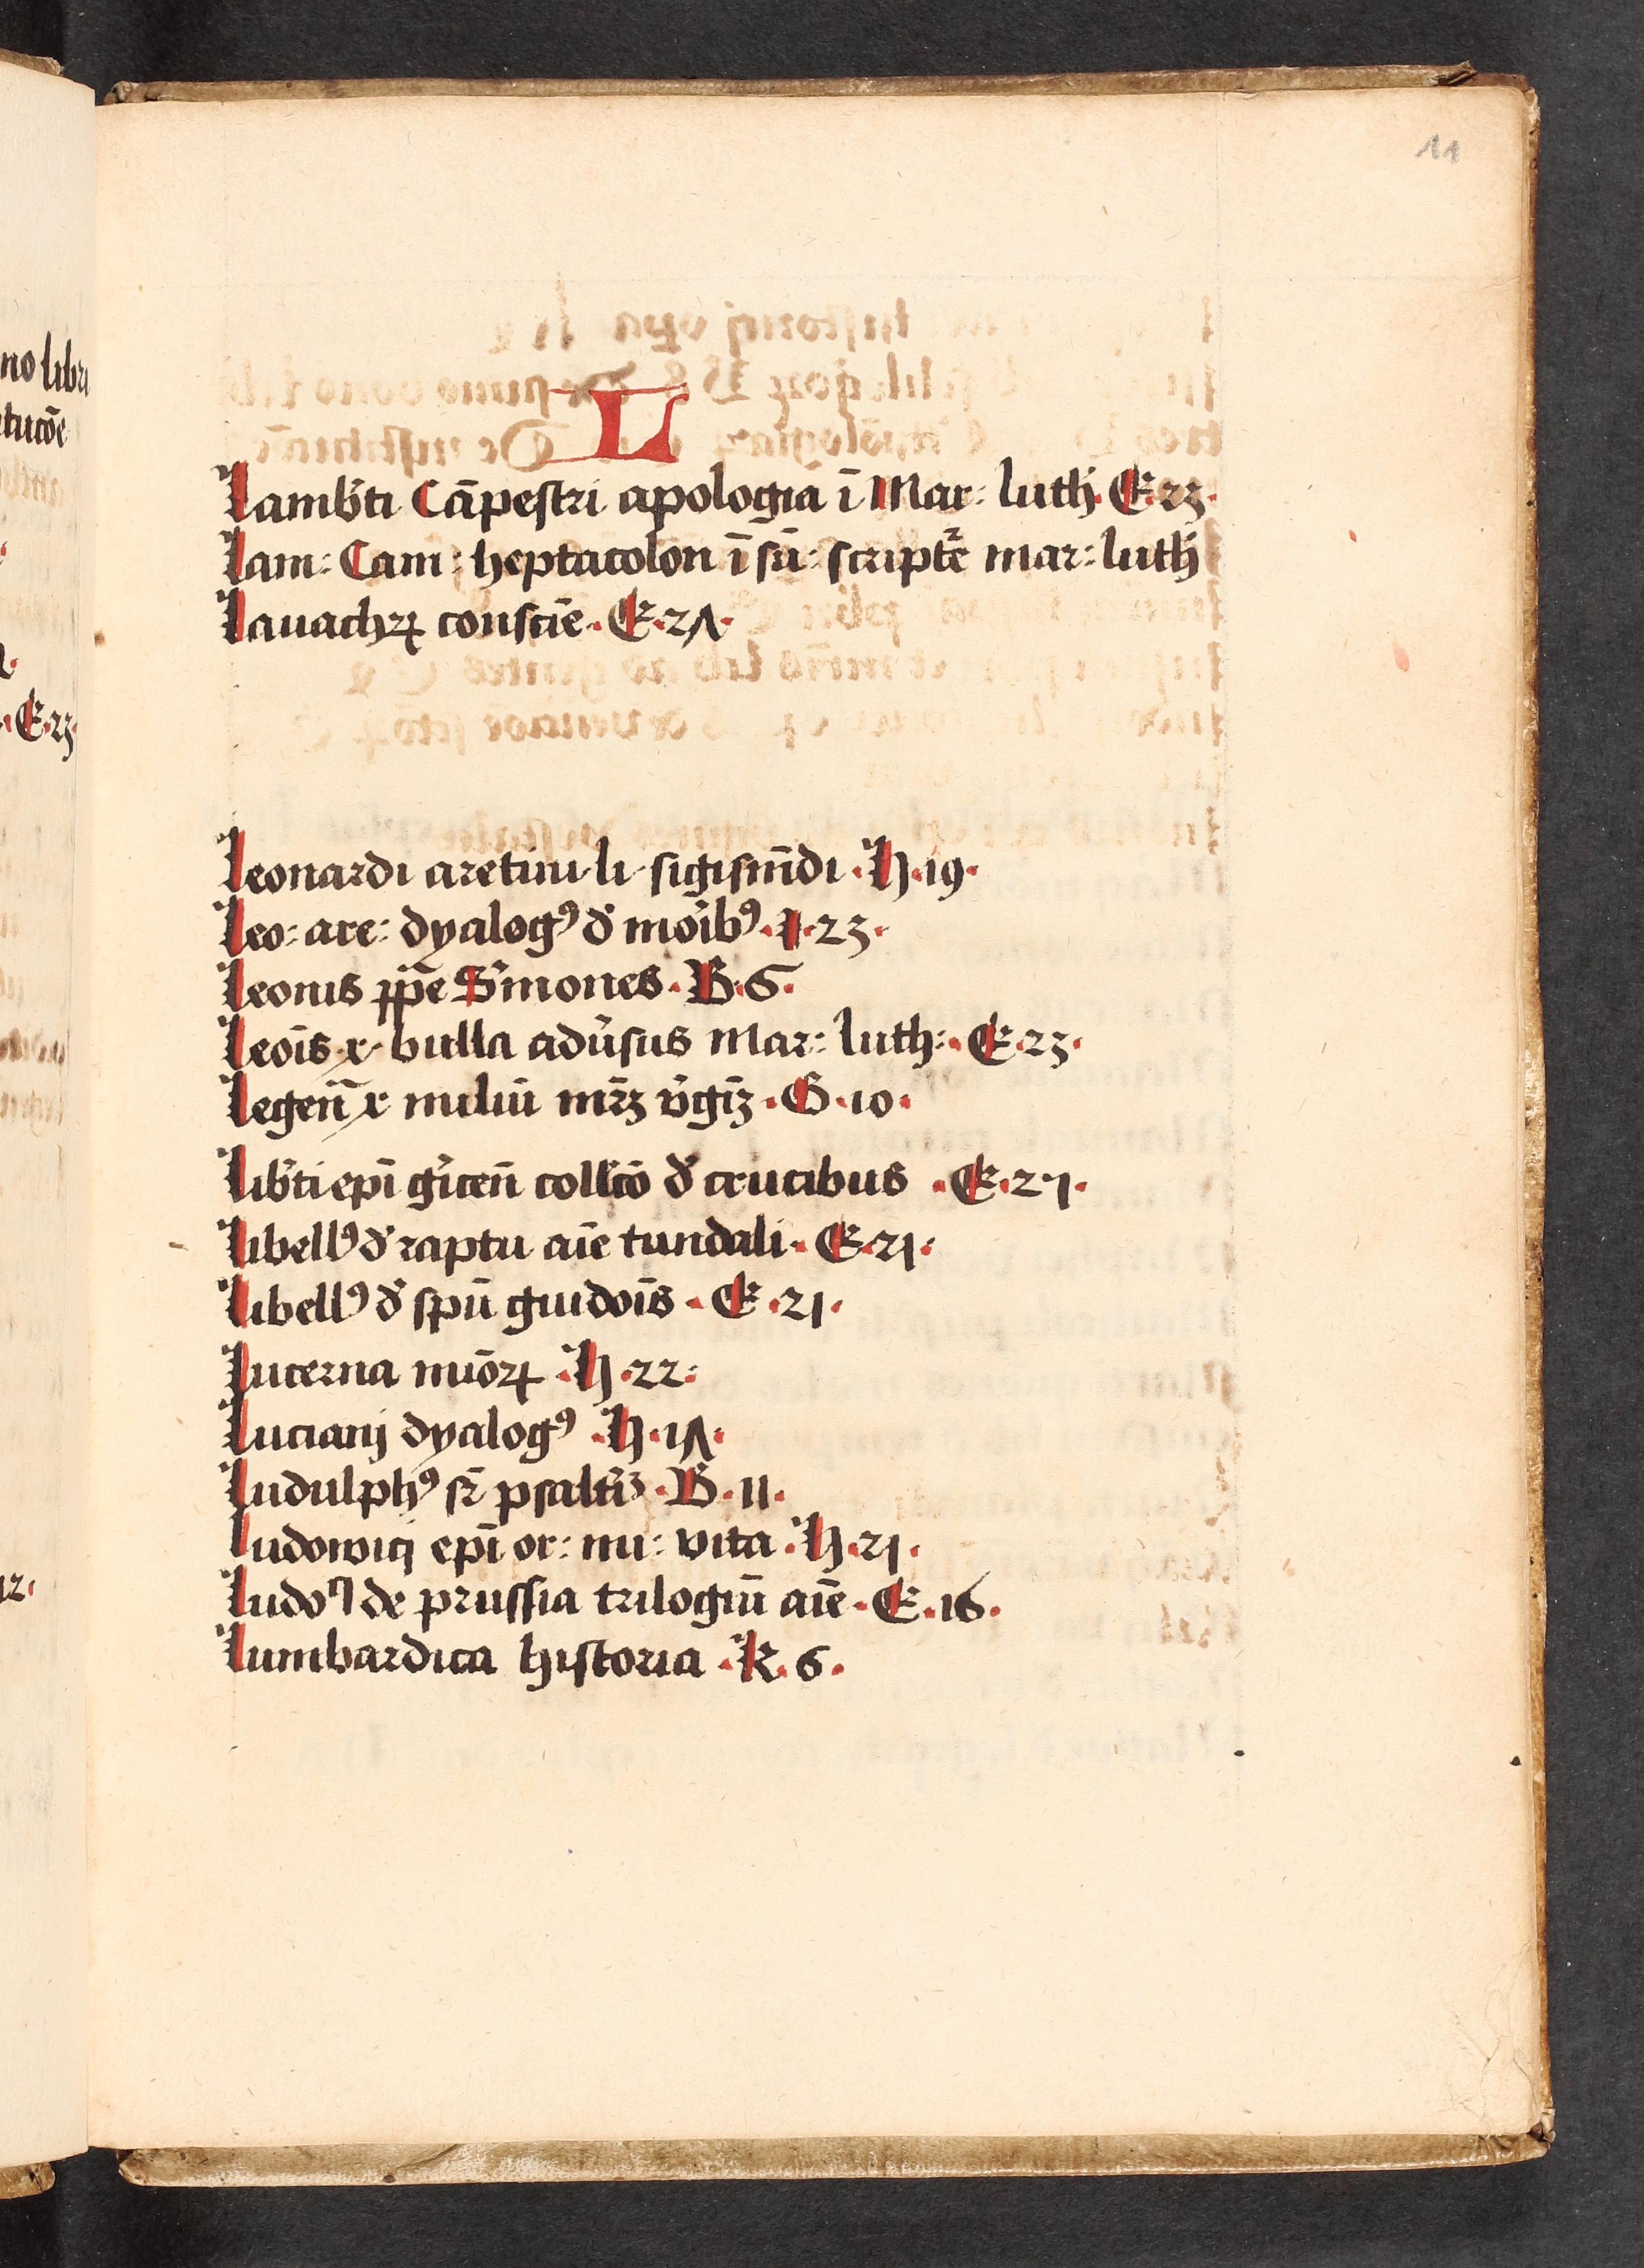 11
L
Lamb'ti Cāpestri apologiā ī Mar: luth. E.23.
Lam: Cam: heptacolon ī sū: script mar: luth
Lavachꝝ consciē. E.2Λ.
Leonardi aretini li sigismūdi. H.19.
Leo: are: dyalogꝰ d' mo'ibꝰ. I.23.
Leonis pp̄e S'mones. B.6.
Leōis x bulla adu'sus Mar: luth: E.23.
Legen̄ x miliū mr̄ꝫ v'gīꝫ. G.10.
Lib'ti ep̄i g'icen̄ coll'cō d' crucibus. E.21.
Libellꝰ d' raptu aīe tundali. E.21.
Libellꝰ d' spū guidoīs. E.21.
Lucerna miōꝝ. H.22.
Lucianj dyalogꝰ. H.1Λ.
Ludulphꝰ sr̄ psalt'iꝫ. B.11.
Ludowicj ep̄i or: mi: vita. H.21.
Ludo de prussia trilogiū aīe. E.16.
Lumbardica historia. K.6.
no libri
tucōe
E.23.
12.